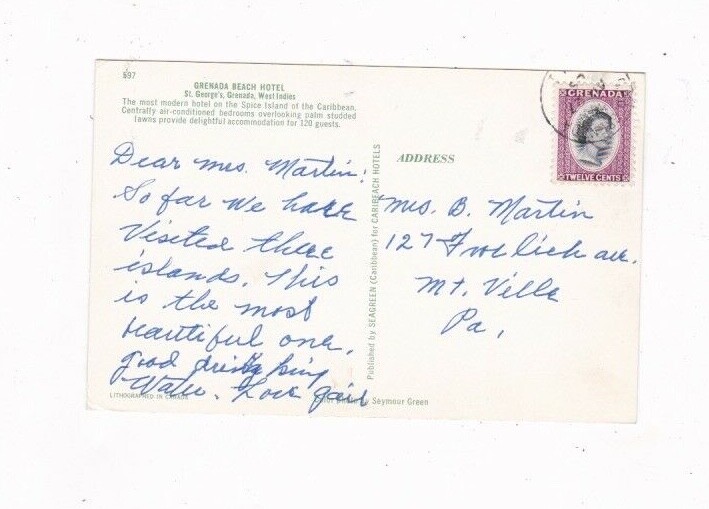 597
GRENADA BEACH HOTEL
St. George's, Grenada, West Indies
The most modern hotel on the Spice Island of the Caribbean.
Centrally air-conditioned bedrooms overlooking palm studded
lawns provide delightful accommodation for 120 guests.
Dear Mrs. Martin:
So far we have
Visited three
islands. This
is the most
beautiful one,
good drinking
Water. Love Gail
LITHOGRAPHED IN CANADA
Published by SEAGREEN (Caribbean) for CARIBEACH HOTELS
Color photo by Seymour Green
ADDRESS
GRENADA
TWELVE CENTS
Mrs. B. Martin
127 Frohlich ave.
Mt. Ville
Pa,